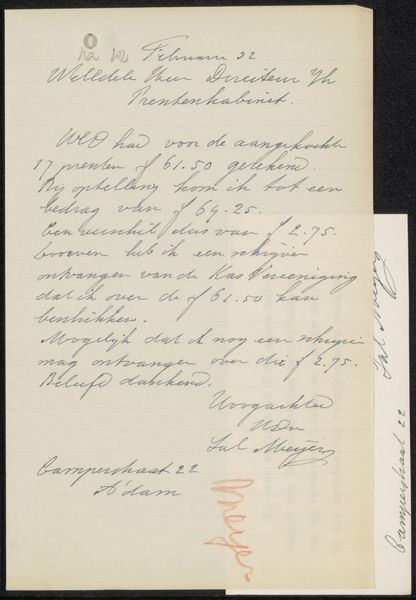 Februari 32
Weledele Heer Directeur
Prentenkabinet.
WEd had voor de aangekochte
17 prenten f 61.50 getekend.
Bij optelling kom ik tot een
bedrag van f 64.25.
Een verschil dus van f 2.75.
heb ik een schrijven
ontvangen van de Kas Vereeniging
dat ik over de f 61.50 kan
beschikken.
Mogelijk dat ik nog een schrijven
mag ontvangen over die f 2.75.
Beleefd dankend.
Hoogachtend
UEdr
Sal Meijer
Camperstraat 22
A'dam
Meyer
Sal Meijer
Camperstraat 22